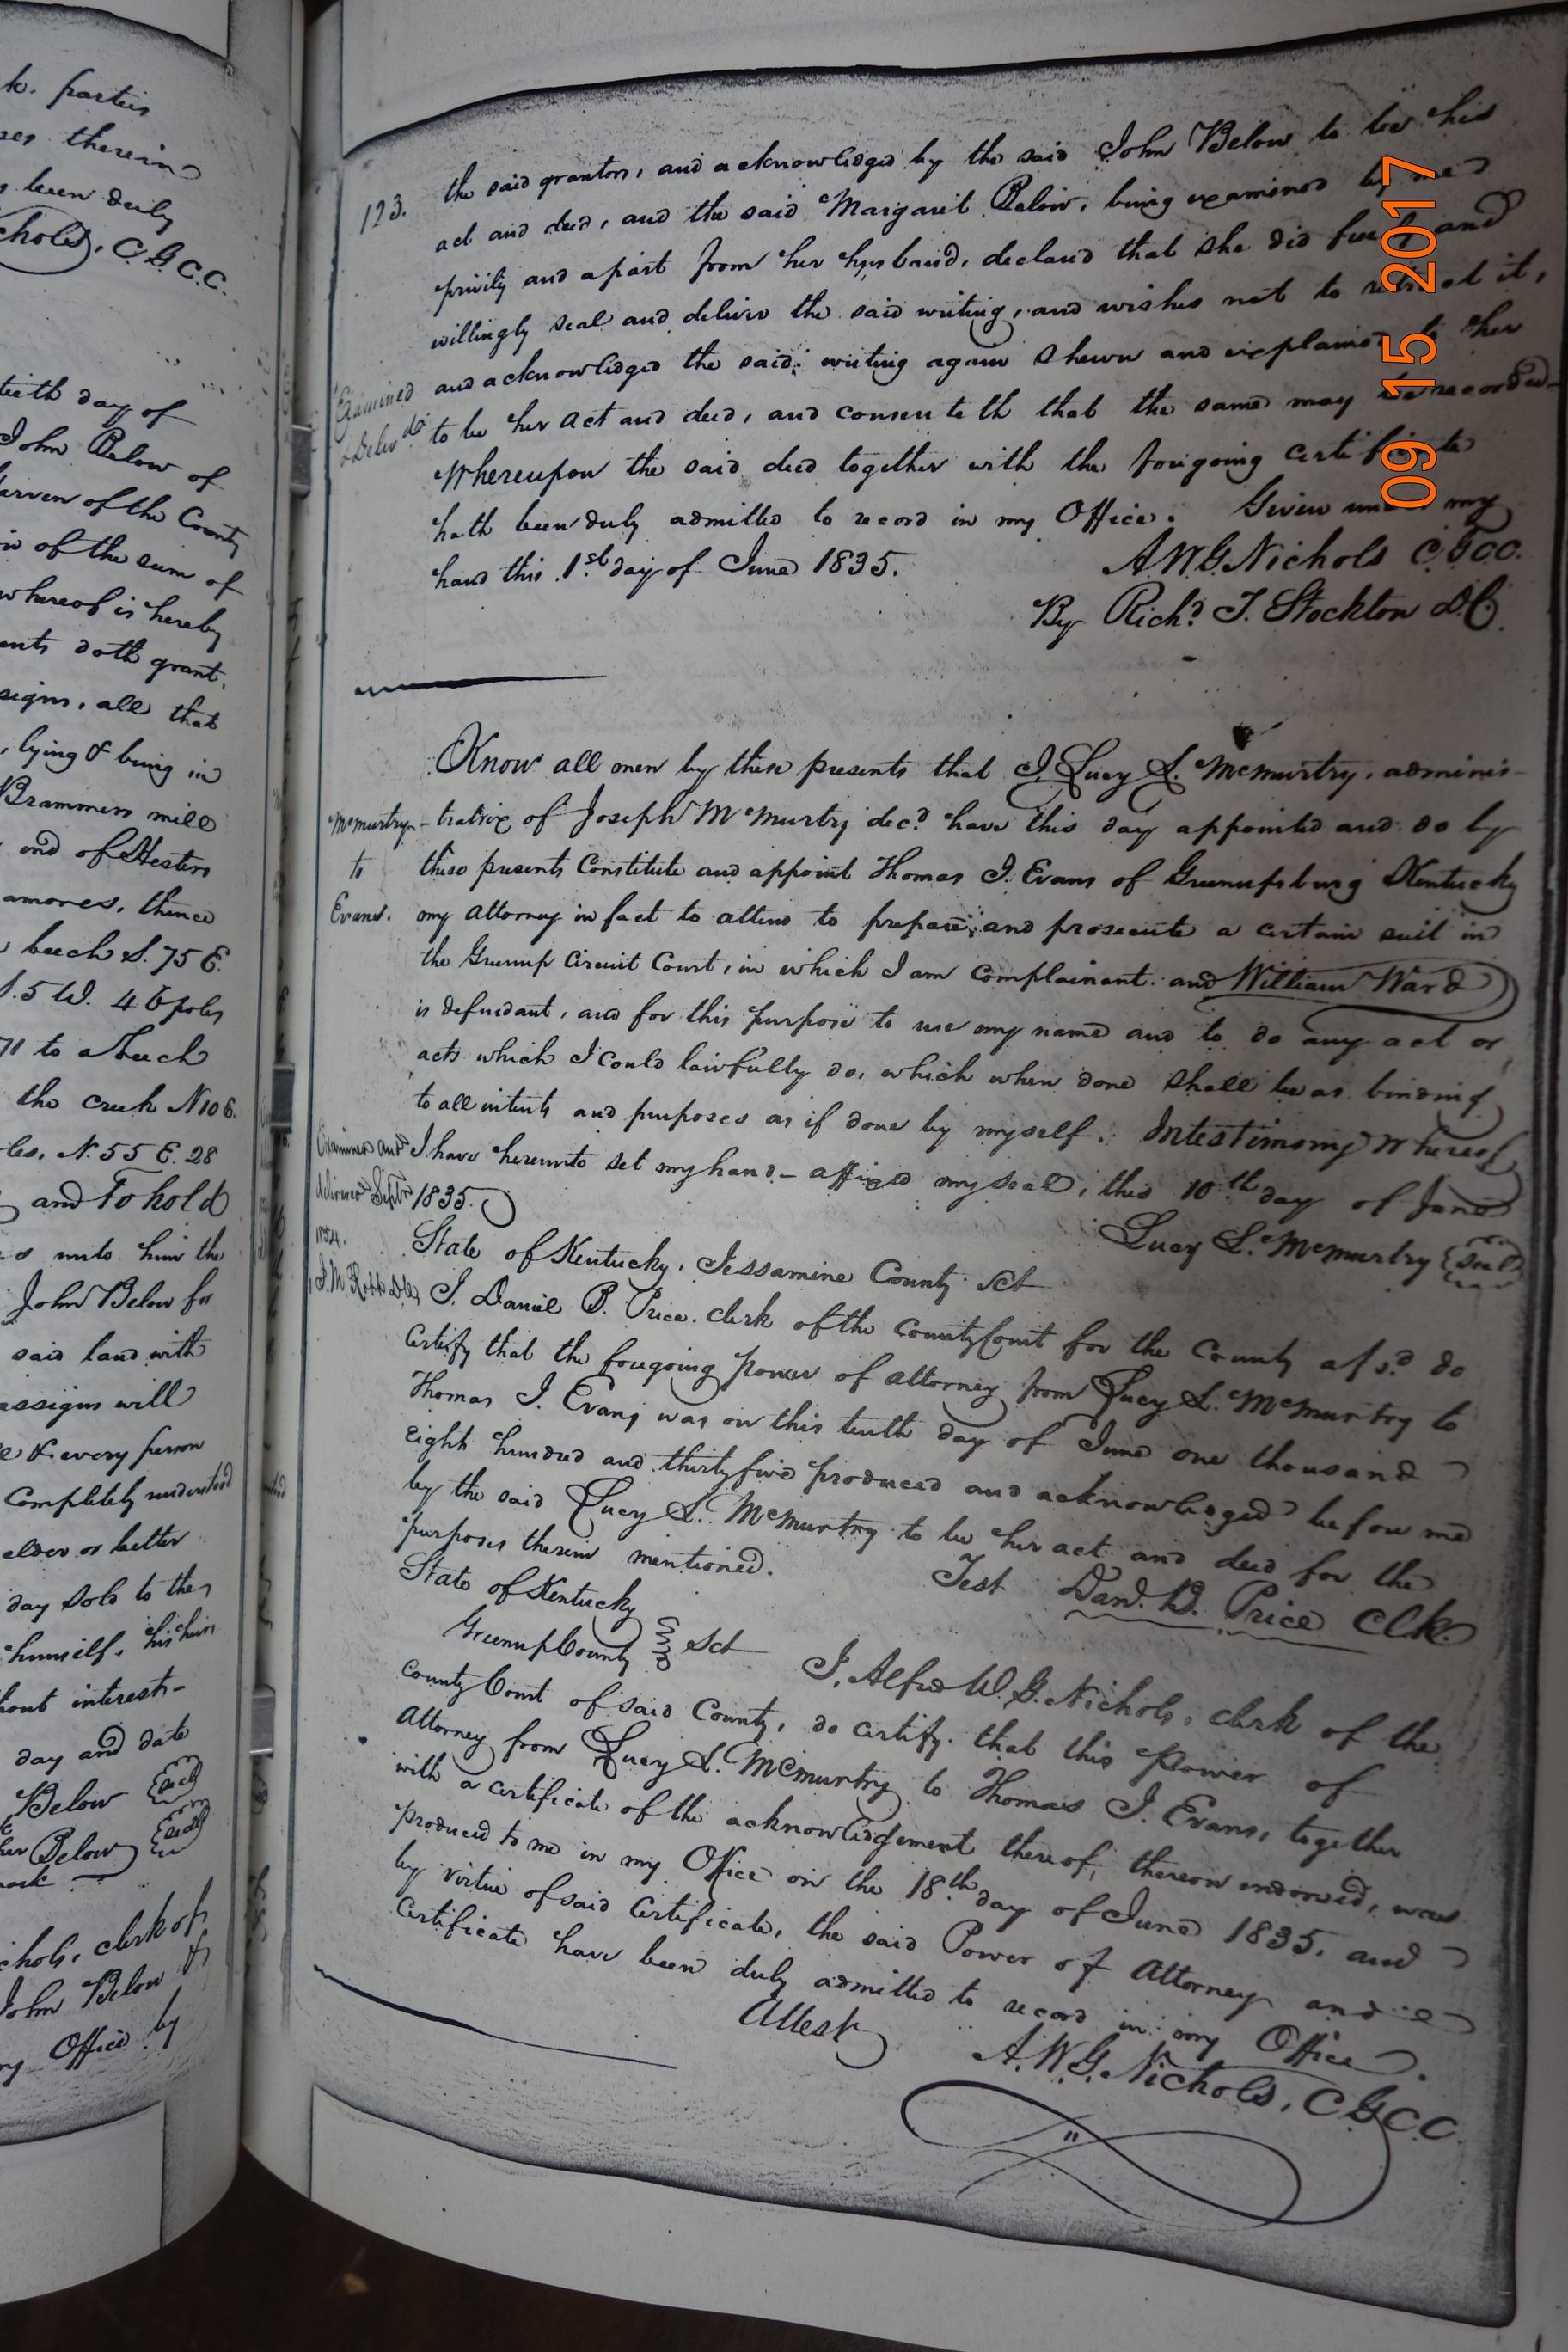 k. parties
therein
been duly
C.G.C.C.
day of
John Below of
of the County
of the sum of
whereof is hereby
doth grant,
all that
, lying & being in
Brammers mill
end of Hesters
thence
beech S. 75 E.
S. 5 W. 46 poles
71 to a beech
the creek N 106.
N. 55 E. 28
and To hold
unto him the
John Below for
said land with
assigns will
& every person
Completely understood
elder or better
day sold to the
himself, his heirs
interest-
day and date
Below Seal
her Below Seal
mark
clerk of
John Below &
Office by
123.
the said grantors, and acknowledged by the said John Below to be his
act and deed, and the said Margaret Below, being examined by me
privily and apart from her husband, declared that she did freely and
willingly seal and deliver the said writing, and wishes not to retract it,
and acknowledged the said writing again shewn and explained to her
to be her act and deed, and consenteth that the same may be recorded-
Whereupon the said deed together with the foregoing certificate
hath been duly admitted to record in my Office. Given under my
hand this 1st day of June 1835.
A.W.G. Nichols C.G.C.C.
By Richd. J. Stockton D.C.
Examined
& Delivd
09 15 2017
Know all men by these presents that I, Lucy S. McMurtry, adminis-
-tratrix of Joseph McMurtry decd. have this day appointed and do by
these presents Constitute and appoint Thomas J. Evans of Greenupsburg Kentucky
my Attorney in fact to attend to prepare, and prosecute a certain suit in
the Greenup Circuit Court, in which I am complainant and William Ward
is defendant, and for this purpose to use my name and to do any act or
acts which I could lawfully do, which when done shall be as binding
to all intents and purposes as if done by myself. In testimony whereof
I have hereunto set my hand - affixed my seal, this 10th day of June
1835.
Lucy S. McMurtry Seal
McMurtry
to
Evans.
Examined and
delivered Septr
1854.
State of Kentucky, Jessamine County Sct
I, Daniel B. Price, clerk of the County Court for the County afsd. do
Certify that the foregoing power of attorney from Lucy S. McMurtry to
Thomas J. Evans was on this tenth day of June one thousand
Eight hundred and thirty five produced and acknowledged before me
by the said Lucy S. McMurtry to be her act and deed for the
purposes therein mentioned.
Test Danl. B. Price Clk.
State of Kentucky
Greenup County Sct
I, Alfred W. G. Nichols, clerk of the
County Court of said County, do certify that this Power of
Attorney from Lucy S. McMurtry to Thomas J. Evans, together
with a certificate of the acknowledgement thereof, thereon endorsed, was
produced to me in my Office on the 18th day of June 1835. and
by virtue of said Certificate, the said Power of Attorney and
Certificate have been duly admitted to record in my Office.
Attest
A.W.G. Nichols, C G C C